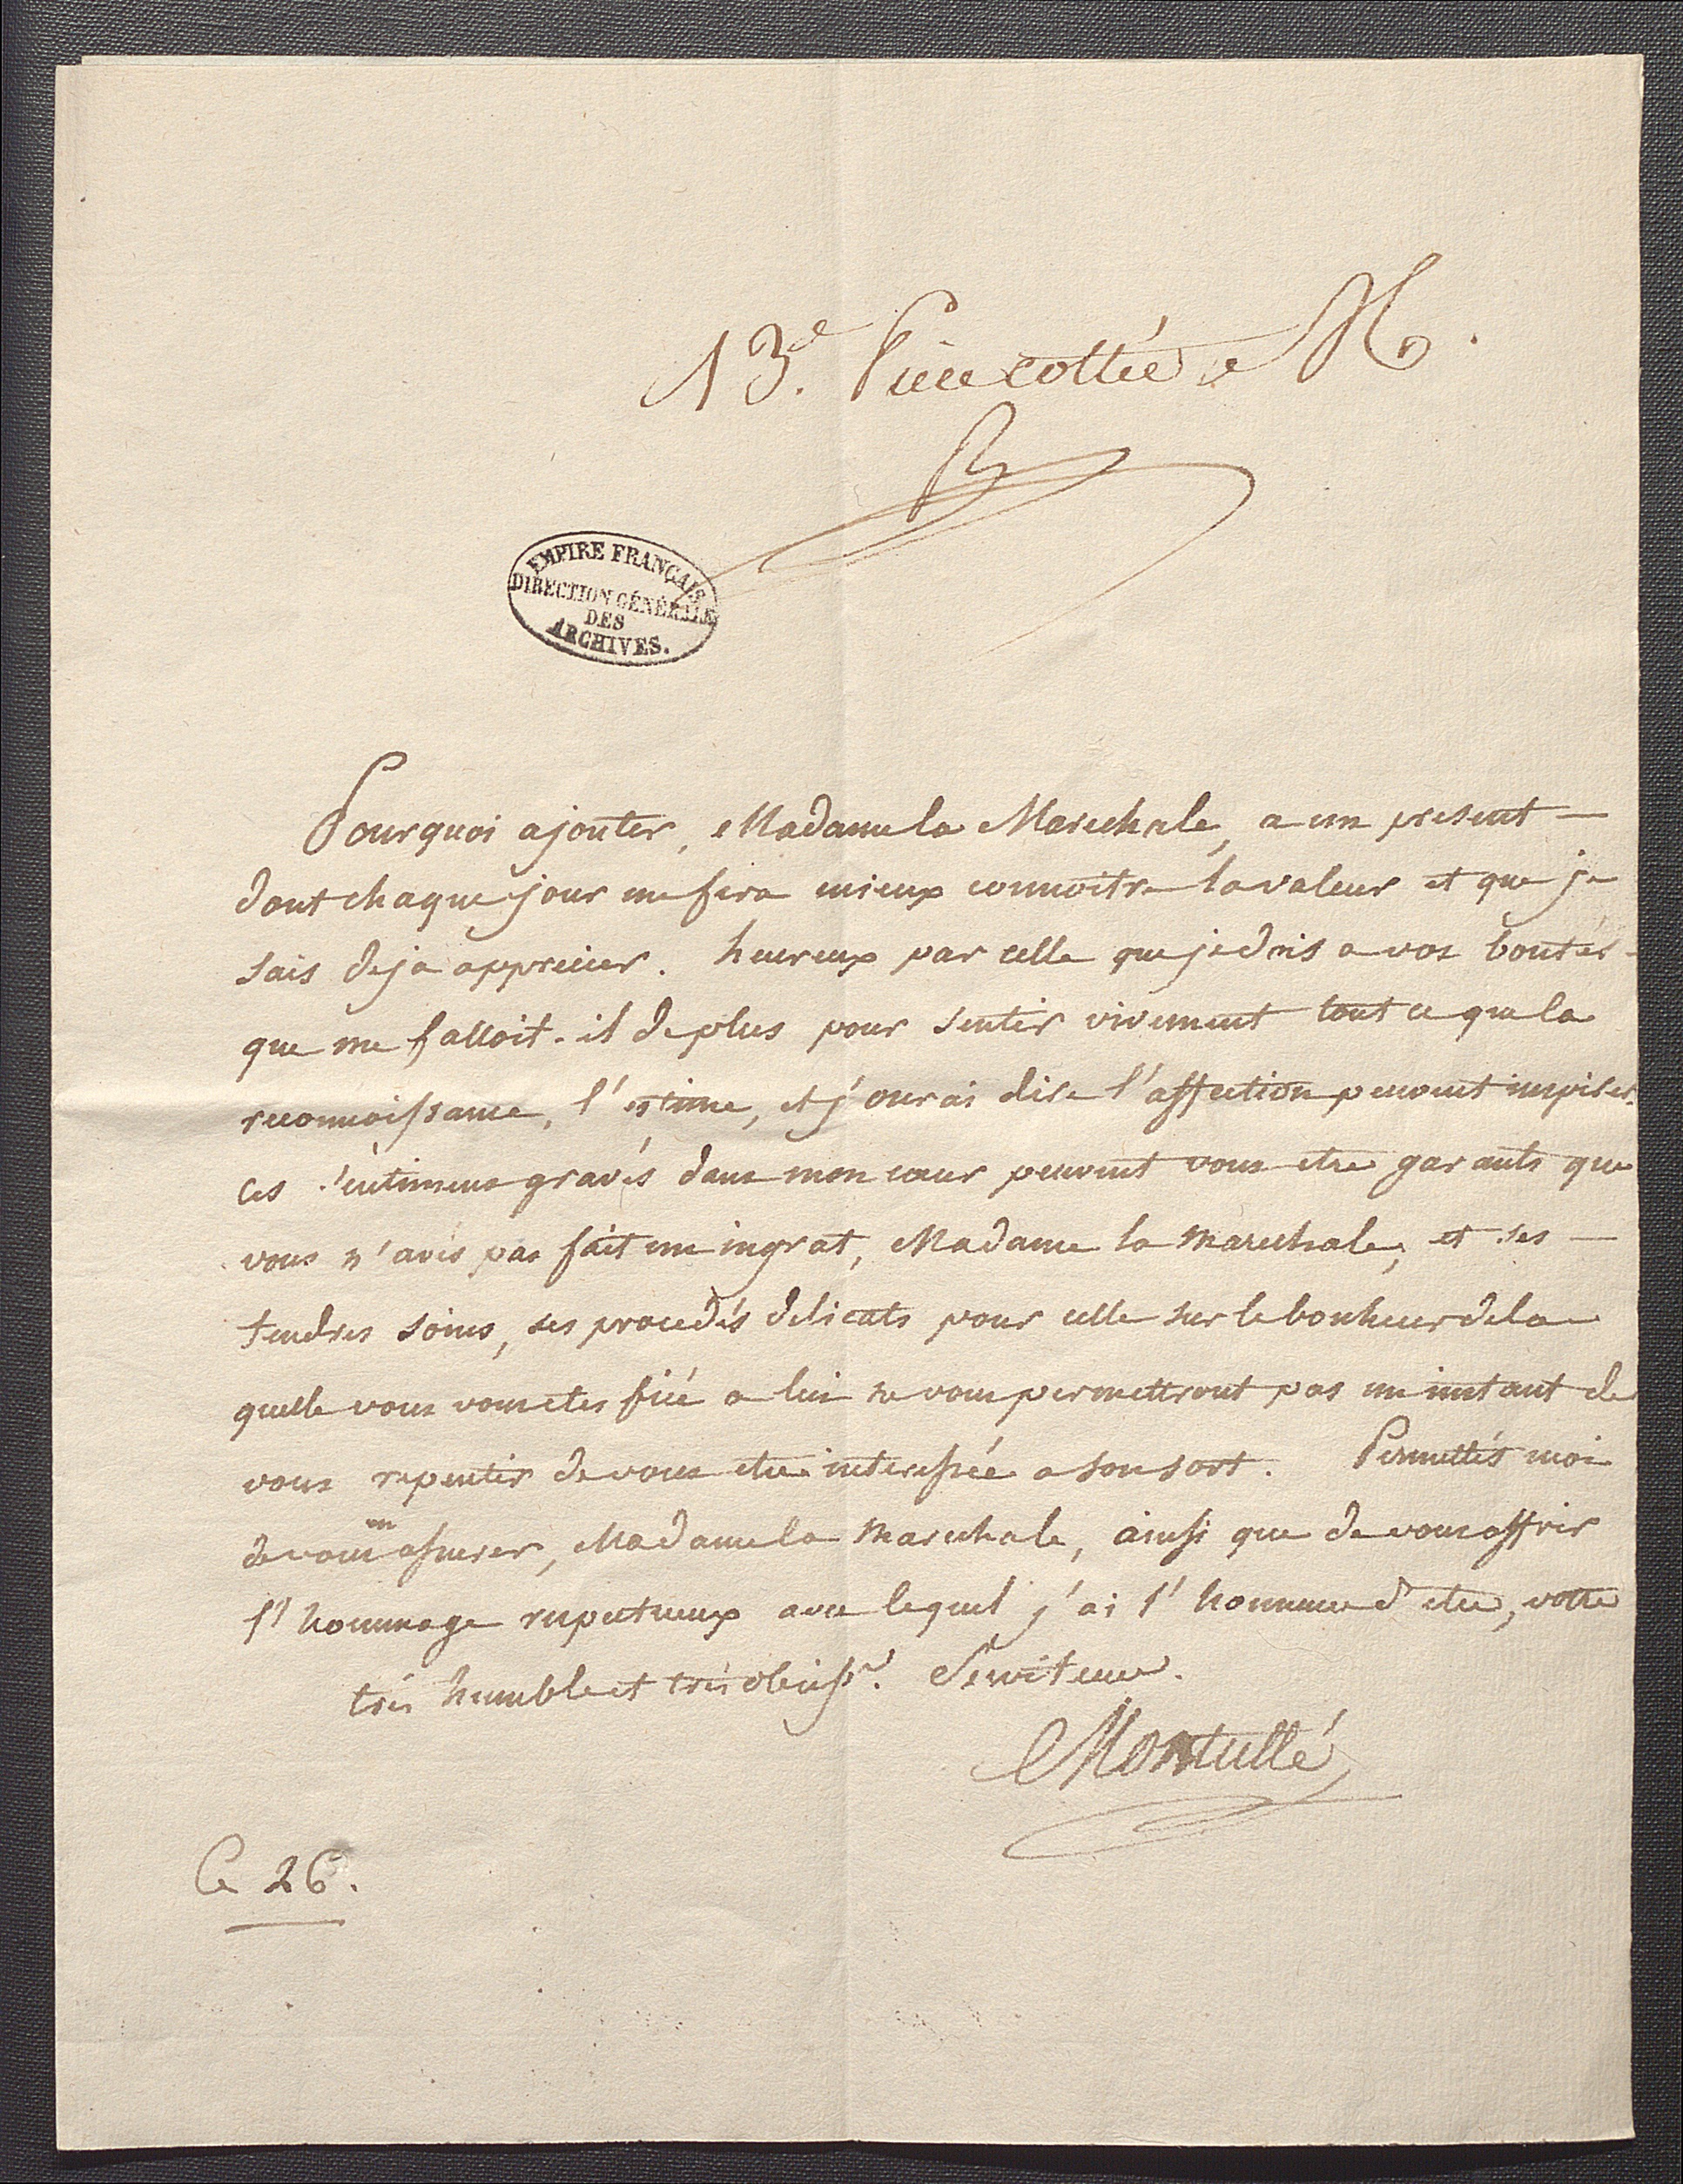 13e. Piece cottée M.
EMPIRE FRANÇAIS
DIRECTION GÉNÉRALE
DES
ARCHIVES.
Pourquoi ajouter, Madame la Marechale, a un present
dont chaque jour me fera mieux connoitre la valeur et que je
sais deja apprecier. heureux par celle que je dois a vos bontés
que me falloit-il de plus pour sentir vivement tout ce que la
reconnoissance, l'estime, et j'oserai dire l'affection peuvent inspirer.
ces sentimens gravés dans mon cœur peuvent vous etre garants que
vous n'avés pas fait un ingrat, Madame la Marechale, et ses
tendres soins, ses procedés delicats pour celle sur le bonheur de la
quelle vous vous etes fiée a lui ne vous permettront pas un instant de
vous repentir de vous etre interessée a son sort. Permettés moi
de vous en assurer, Madame la Marechale, ainsi que de vous offrir
l'hommage respectueux avec lequel j'ai l'honneur d'etre, votre
très humble et très obeisst. Serviteur.
Montullé
Ce 26.